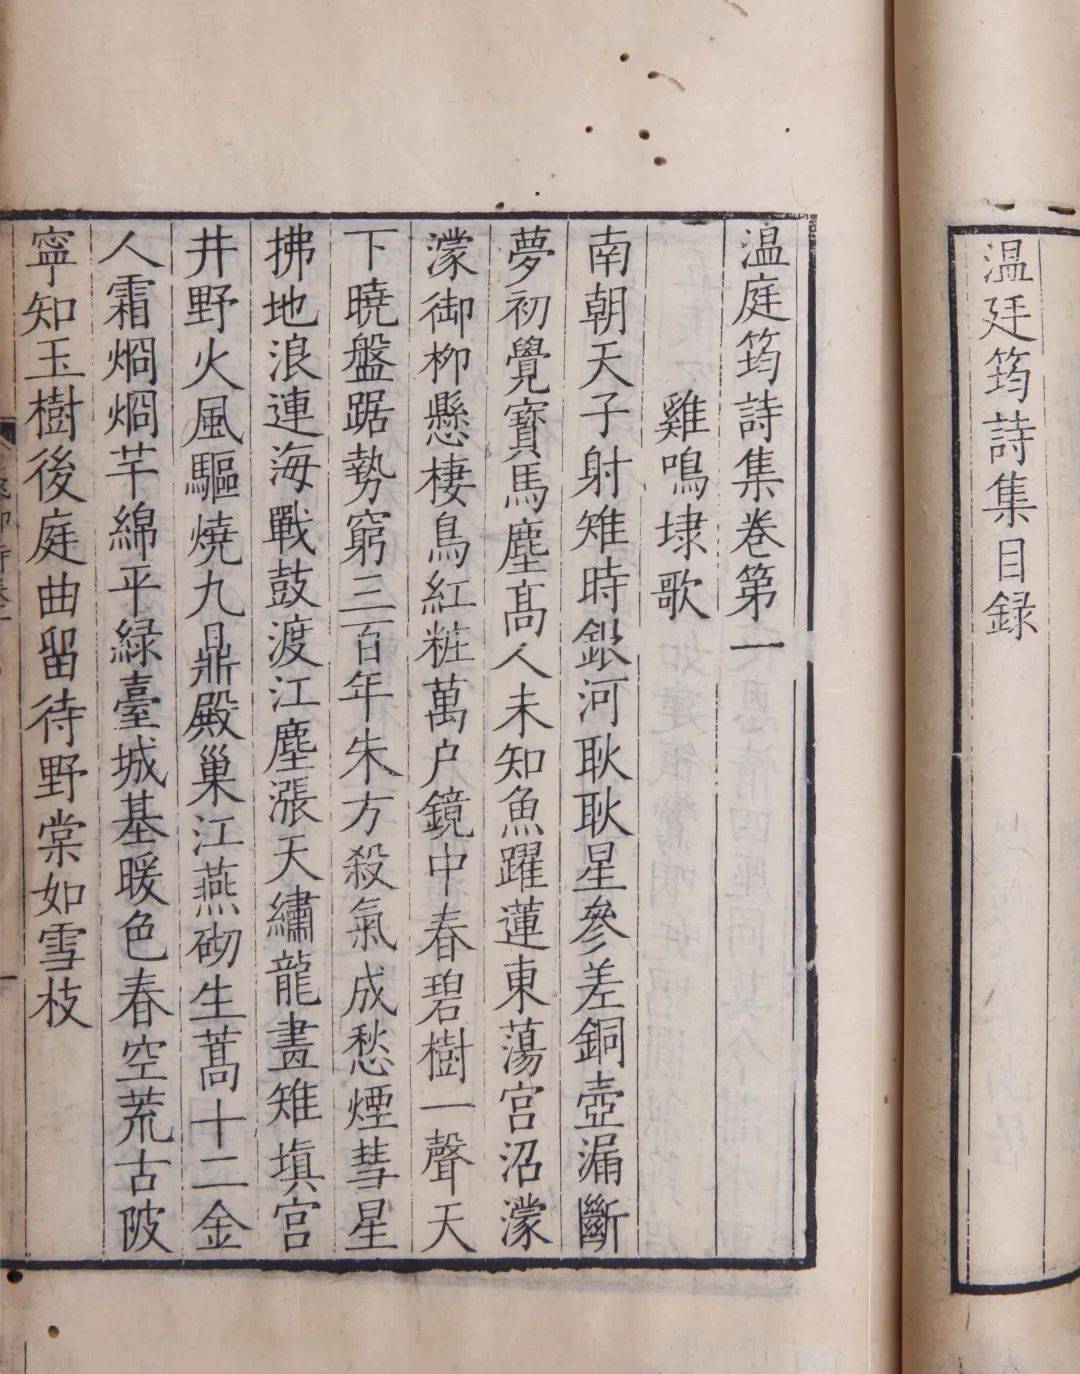 温廷筠詩集目録
温庭筠詩集卷第一
雞鳴埭歌
南朝天子射雉時銀河耿耿星參差銅壺漏斷
夢初覺寶馬塵髙人未知魚躍蓮東蕩宫沼濛
濛御柳懸棲鳥紅粧萬户鏡中春碧樹一聲天
下曉盤踞勢窮三百年朱方殺氣成愁煙彗星
拂地浪連海戰鼓渡江塵漲天繡龍畫雉填宫
井野火風驅燒九鼎殿巢江燕砌生蒿十二金
人霜烱烱芊綿平緑臺城基暖色春空荒古陂
寧知玉樹後庭曲留待野棠如雪枝